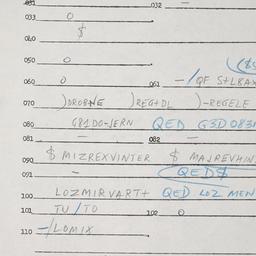 031 032 —
033 O
040 $
050 O
060 O 061 — /QF S+L8AX
070 )DROBNE )REG+DL )-REGELE
080 G81DO-JERN QED G3D0831
081 — 082 —
090 $ MIZREXVINTER $ MAJREVHIN
091 — QED$
100 LOZMIRVART+ QED LOZ MEN
101 TU/TO 102 O
110 -/LOMIX